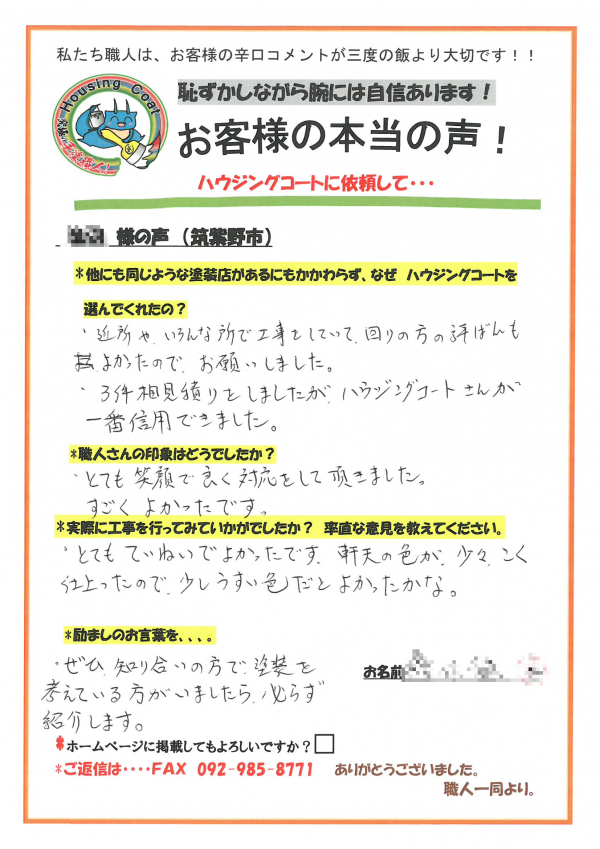 私たち職人は、お客様の辛口コメントが三度の飯より大切です！！
Housing Coat
恥ずかしながら腕には自信あります！
お客様の本当の声！
ハウジングコートに依頼して・・・
様の声（筑紫野市）
*他にも同じような塗装店があるにもかかわらず、なぜ ハウジングコートを
選んでくれたの？
・近所や、いろんな所で工事をしていて、回りの方の評ばんも
よかったので、お願いしました。
・3件相見積りをしましたが、ハウジングコートさんが
一番信用できました。
*職人さんの印象はどうでしたか？
・とても笑顔で良く対応をして頂きました。
すごくよかったです。
*実際に工事を行ってみていかがでしたか？ 率直な意見を教えてください。
・とてもていねいでよかったです。軒天の色が、少々、こく
仕上ったので、少しうすい色だとよかったかな。
*励ましのお言葉を、、、。
・ぜひ、知り合いの方で、塗装を
考えている方がいましたら、必らず
紹介します。
お名前
*ホームページに掲載してもよろしいですか？□
*ご返信は・・・・FAX 092-985-8771 ありがとうございました。
職人一同より。